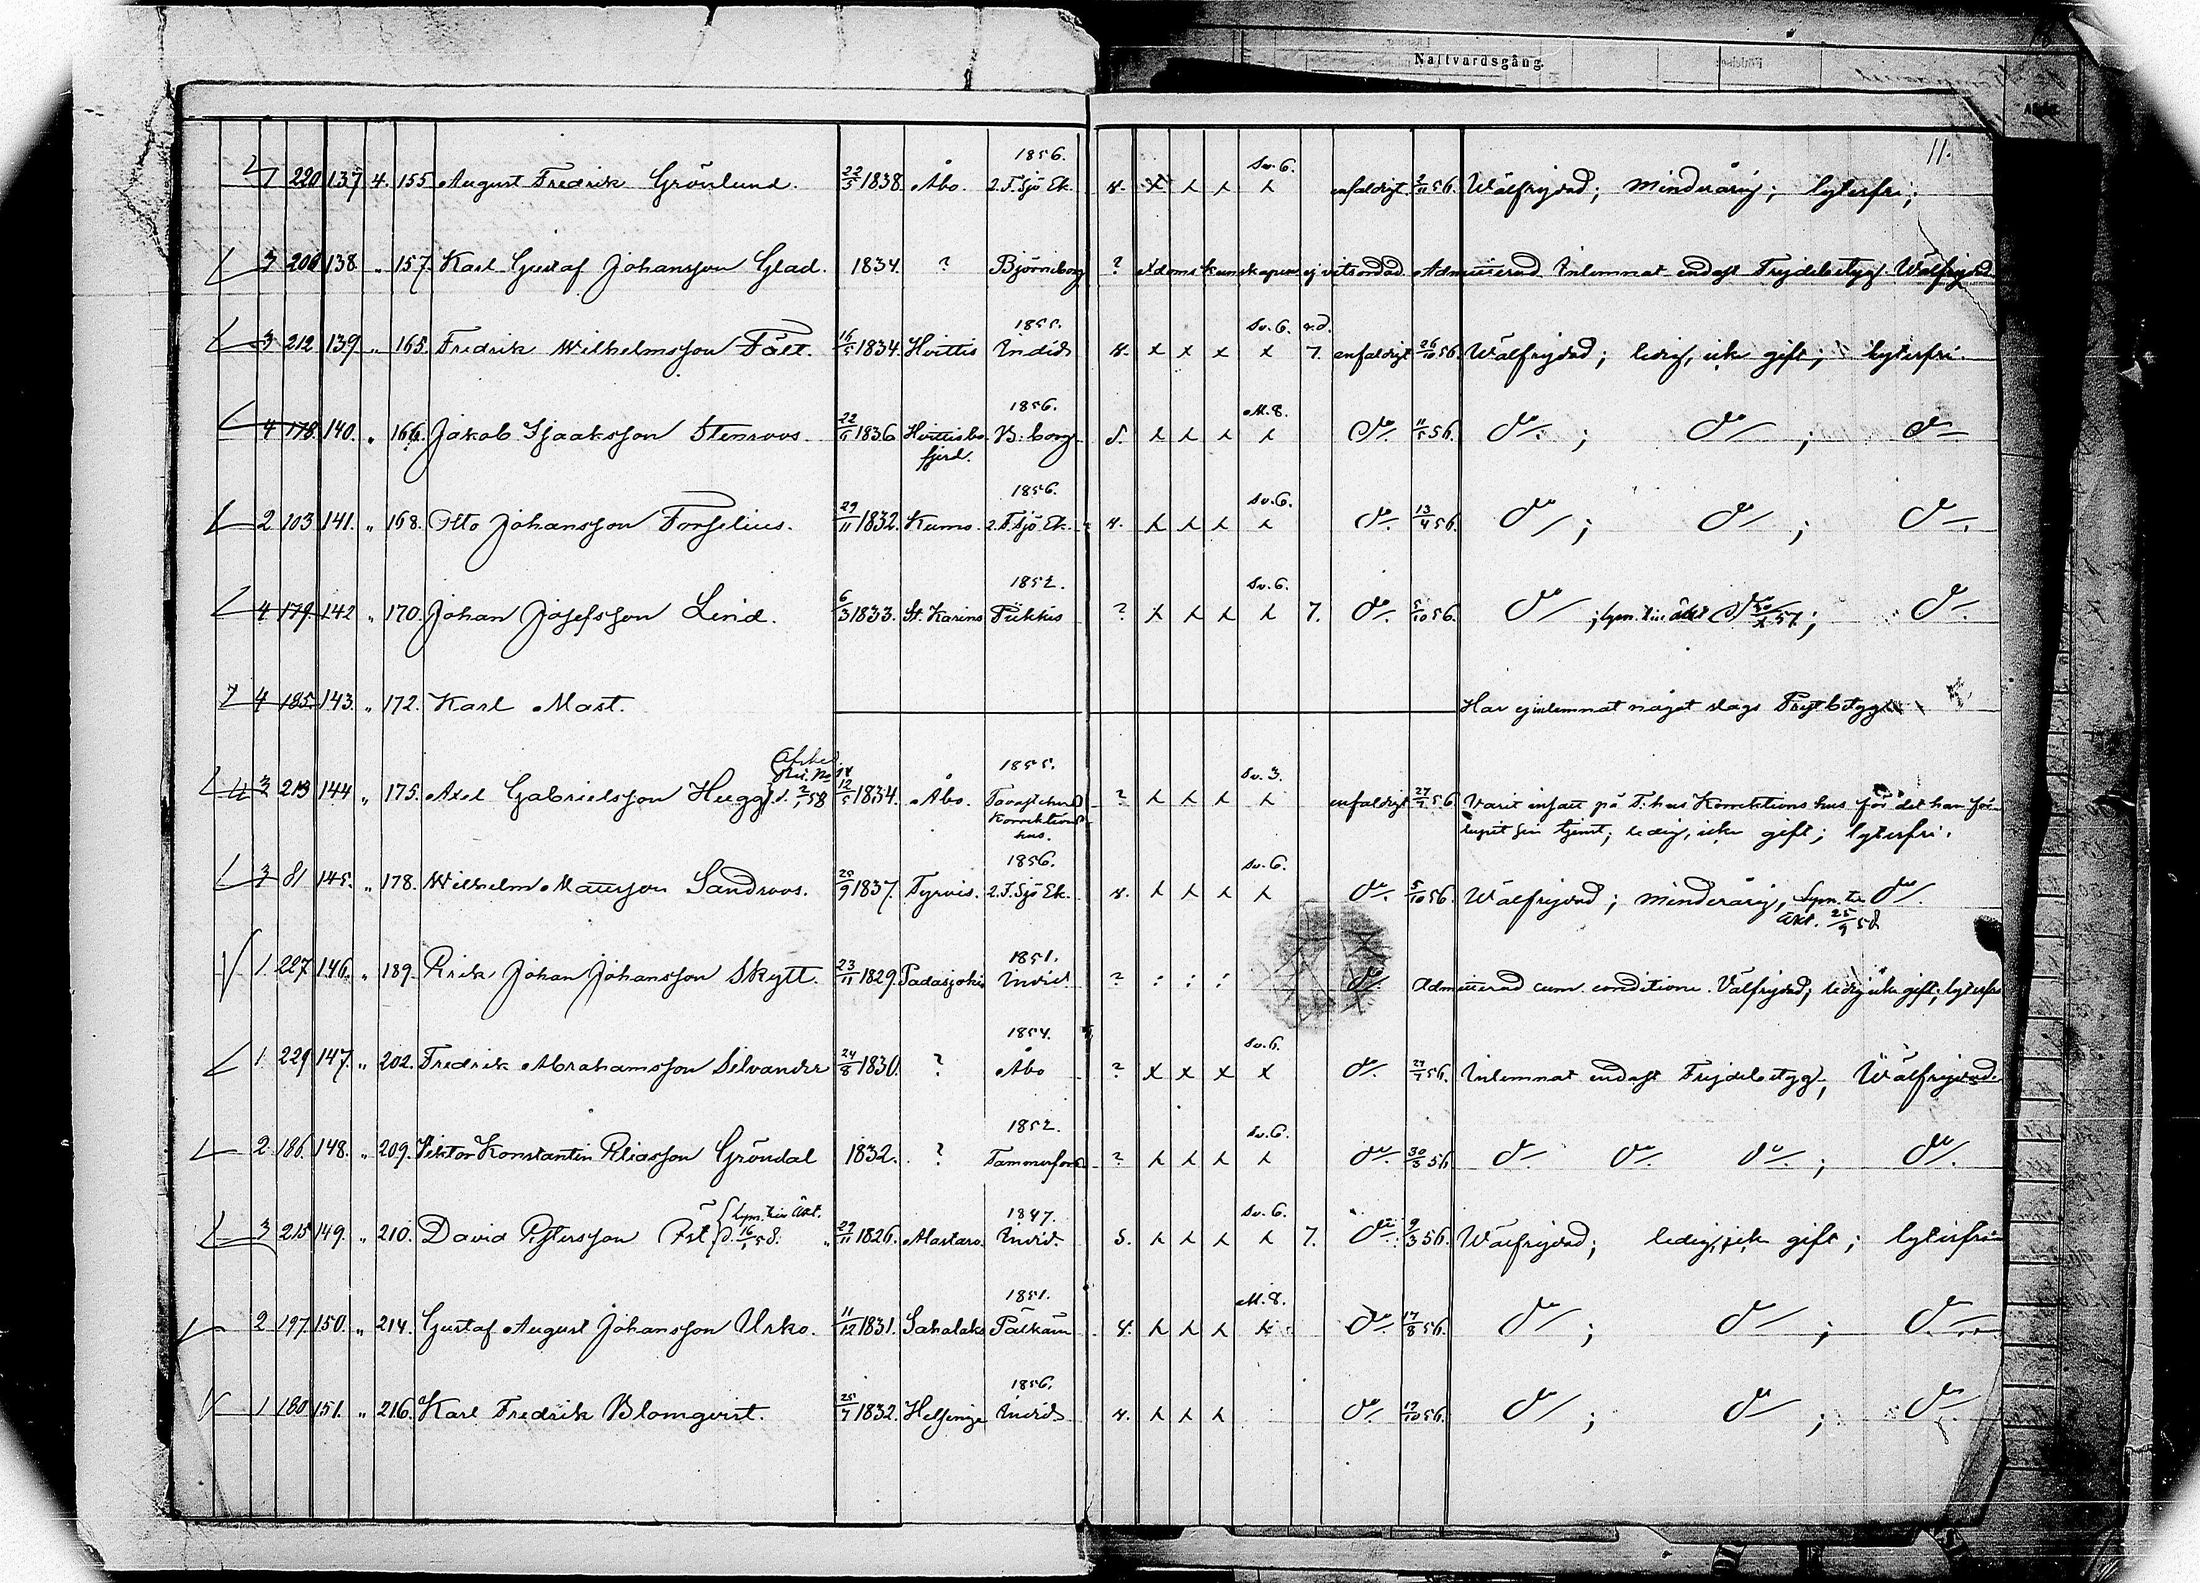 Nattvardsgång.
11.
7 220 137 4. 155. August Fredrik Grönlund. 22/5 1838. Åbo. 1856. 2. F. Sjö Ek. 4. x x x Sv. 6. x enfaldigt. 2/11 56. Wälfrejdad; minderårig; lyterfri;
3 206 138 " 157. Karl Gustaf Johansson Glad. 1834. ? Björneborg ? ej vitsordad. Admitterad Inlemnat endast Frejdebetyg. Wälfrejdad
3 212 139 " 165. Fredrik Wilhelmsson Fält. 16/5 1834. Hvittis 1855. Indid. 4. x x x Sv. 6. x 7. enfaldigt 26/10 56. Wälfrejdad; ledig, icke gift; lyterfri.
4 178 140. " 166. Jakob Isaaksson Stenroos. 22/5 1836 Hvittisbofjerd. 1856. B:borg. x x x M. 8. x Do. 11/5 56. Do. ; Do ; Do
2 103 141. " 168. Otto Johansson Forselius. 29/11 1832. Kumo. 1856. 2. F. Sjö Ek. 4. x x x Sv. 6. x Do. 13/4 56. Do ; Do ; Do.
4 179. 142 " 170. Johan Josefsson Lind. 6/3 1833. St. Karins 1852. Pikkis ? x x x Sv. 6. x 7. Do. 5/10 56. Do ; 57. ; Do.
7 4 185. 143. " 172. Karl Mast. Har ej inlemnat något slags
3 213 144 " 175. Axel Gabrielsson Hugg d. 2/1 58 12/5 1834. Åbo. 1855. Tavastehus Korrektions hus. ? x x x Sv. 3. x enfaldigt 56 Varit insatt på T:hus Korrektions hus för det han för-
lupit sin tjenst; ledig, icke gift; lyterfri.
3 81 145. " 178. Wilhelm Mattsson Sandroos. 25/9 1837. Tyrvis. 1856. 2. F. Sjö Ek. 4. x x x Sv. 6. x Do. 5/10 56. Wälfrejdad; minderårig, Do.
25/9 58
1. 227. 146. " 189. Erik Johan Johansson Skytt. 23/11 1829. Padasjoki 1851. Indid. ? : : : Do. Admitterad cum conditione. Välfrejdad; ledig icke gift; lyterfri
1. 229 147. " 202. Fredrik Abrahamsson Silvander 24/8 1830. ? 1854. Åbo ? x x x Sv. 6. x Do. 56. Inlemnat endast Frejdebetyg; Wälfrejdad.
2. 186. 148. " 209. Viktor Konstantin Eliasson Gröndal 1832. ? 1852. Tammerfors ? x x x Sv. 6. x Do. 30/3 56 Do. Do. Do. ; Do.
3 215 149. " 210. David Petersson 16/1 58. 29/11 1826. Alastaro. 1847. Indid. 5. x x x Sv. 6. x 7. Do. 9/3 56. Wälfrejdad; ledig, icke gift; lyterfri
2 197. 150. " 214. Gustaf August Johansson Urko. 11/12 1831. Sahalaks 1851. Pälkäne 4. x x x M. 8. x Do. 17/8 56. Do ; Do ; Do
1 180 151. " 216. Karl Fredrik Blomqvist. 25/7 1832. Helsinge 1856. Indid. 4. x x x Do. 19/10 56. Do ; Do ; Do